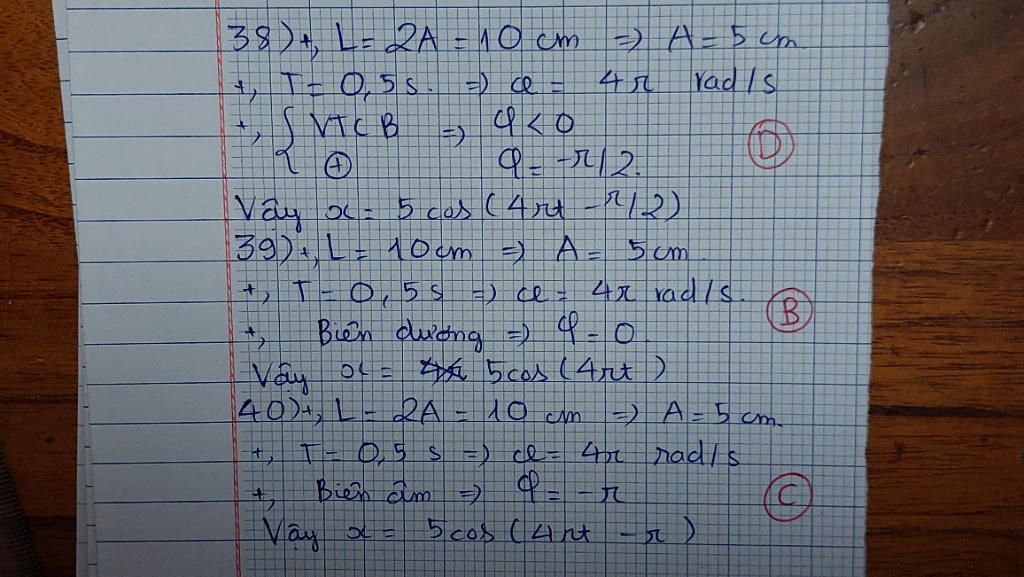 38) +, L = 2A = 10 cm => A = 5 cm
+, T = 0,5 s. => ω = 4π rad/s
+, { VTCB => φ < 0
⊕ φ = -π/2. D
Vậy x = 5 cos (4πt - π/2)
39) +, L = 10 cm => A = 5 cm
+, T = 0,5 s => ω = 4π rad/s. B
+, Biên dương => φ = 0
Vậy x = 5 cos (4πt)
40) +, L = 2A = 10 cm => A = 5 cm.
+, T = 0,5 s => ω = 4π rad/s
+, Biên âm => φ = -π C
Vậy x = 5 cos (4πt - π)